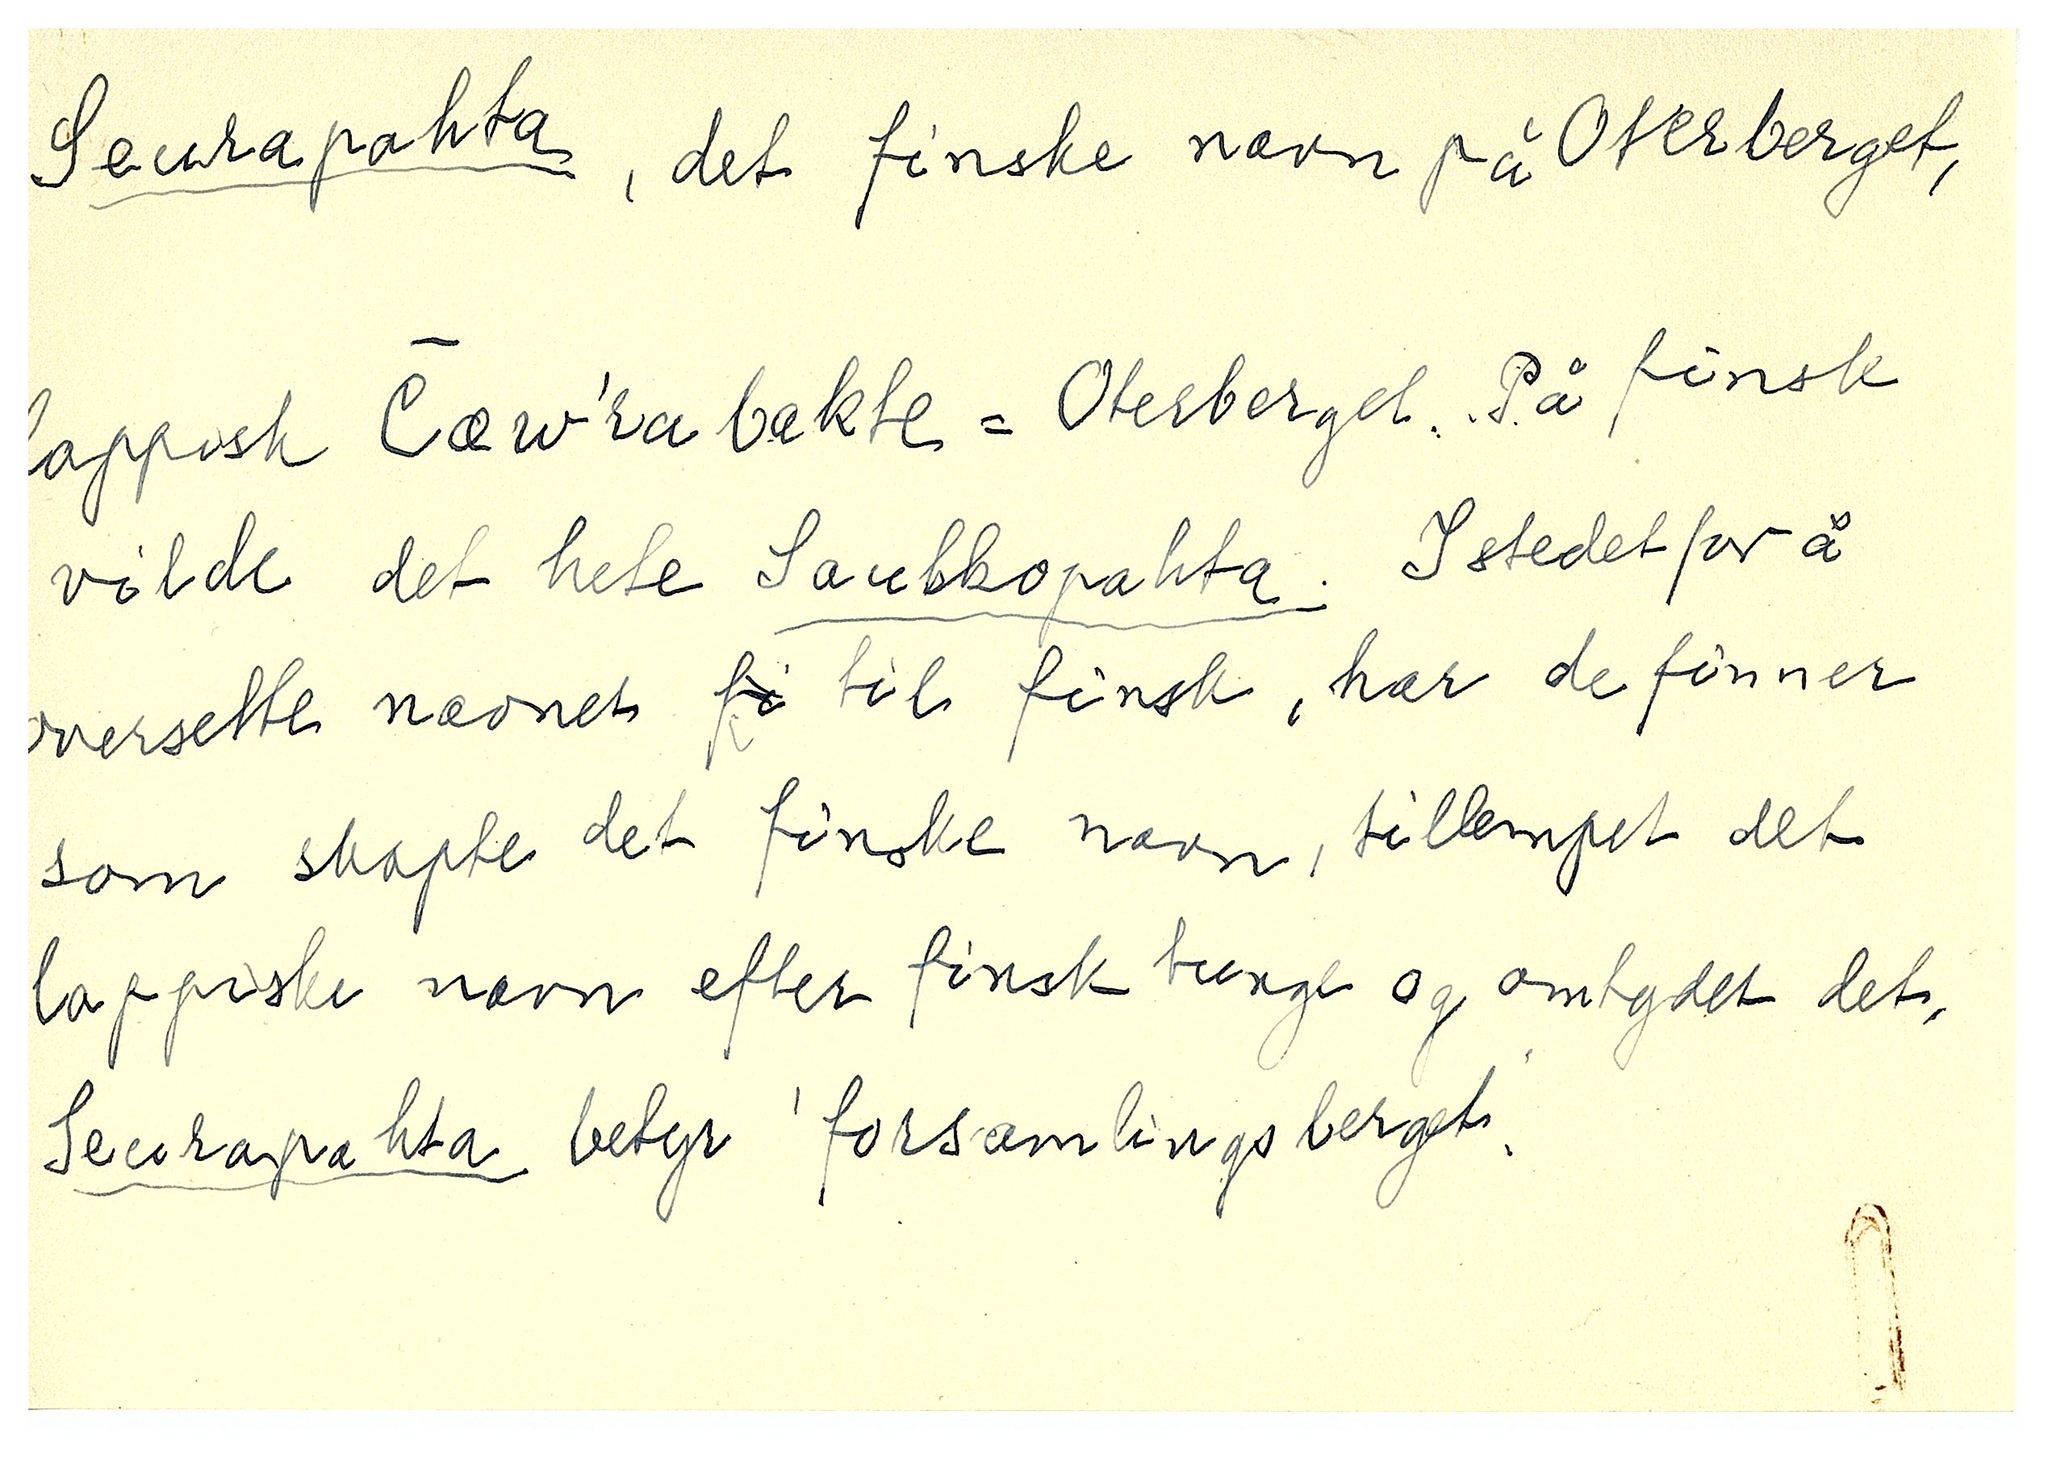 Seurapahta, det finske navn på Oterberget,
lappisk C̄æw'rabakte = Oterberget. På finsk
vilde det hete Saukkopahta. Istedetfor å
oversette navnet fi til finsk, har de finner
som skapte det finske navn, tillempet det
lappiske navn efter finsk tunge og omtydet det,
Seurapahta betyr 'forsamlingsberget'.